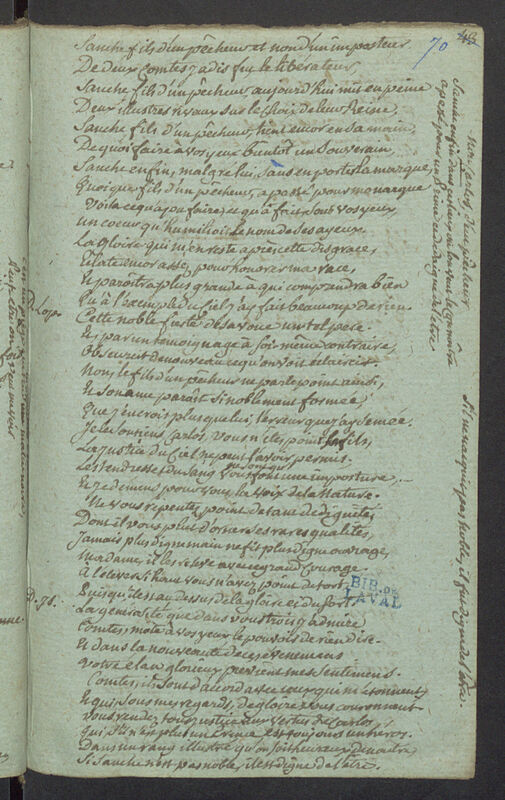 43
70
Sanche fils d'un pêcheur et non d'un imposteur
De deux Comtes jadis fut le libérateur,
Sanche fils d'un pêcheur, aujourd'hui mis en peine
Deux illustres rivaux sur le choix de leur Reine,
Sanche fils d'un pêcheur, tient encor en sa main,
De quoi faire à vos yeux bientôt un Souverain
Sanche enfin, malgré lui, dans
Quoique fils d'un pêcheur, a passé pour monarque
Voila ce qu'a pu faire, ce qu'à fait sous vos yeux
un coeur qu'humilioit le nom de ses ayeux.
La gloire qui m'en reste après cette disgrace,
Eclate encor assez pour honorer ma race,
Et paroîtra plus grande à qui comprendra bien
Qu'à l'exemple du ciel j'ay fait beaucoup de rien.
D. Lop.
Cette noble fierté désavoue un tel pere.
Et, par un témoignage à soi-même contraire,
Obscurcit de nouveau ce qu'on voit éclaircir.
Non, le fils d'un pêcheur ne parle point ainsi,
Et son ame paroît si noblement formée,
Que j'en crois plus que lui, l'erreur que j'ay semée.
Je le soutiens, Carlos, vous n'êtes point son fils,
La justice du Ciel ne peut l'avoir permis.
Les tendresses du sang vous font une imposture,
Et je démens pour vous la voix de la Nature.
Ne vous repentez point de tant de dignités,
Dont il vous plut d'orner ses rares qualités,
Jamais plus digne main ne fit plus digne ouvrage,
Madame, il les relève avec ce grand Courage.
À l'élever si haut vous n'avez point de tort,
Puisqu'il est au dessus de la gloire et du sort,
D. Is.
La générosité que dans vous trois j'admire
Comtes, m'ôte à vos yeux le pouvoir de rien dire.
Et dans la nouveauté de ces événemens
Votre éclat glorieux previent mes sentimens.
Comtes, ils sont d'accord avec ceux qui m'étonnent
Et qui, sous mes regards, de gloire vous couronnent
vous rendez tous justice aux vertus de Carlos,
Qui, s'il n'est plus un Prince, est toujours un héros.
Dans un rang illustre qu'on soit heureux de naître
Si Sanche n'est pas noble, il est digne de l'être.
BIB. DE
LAVAL
Non, Carlos, d'un pêcheur
Sanche enfin
a passé pour un Prince et digne de l'être
Si Sanche n'est pas noble, il fut digne de l'être.